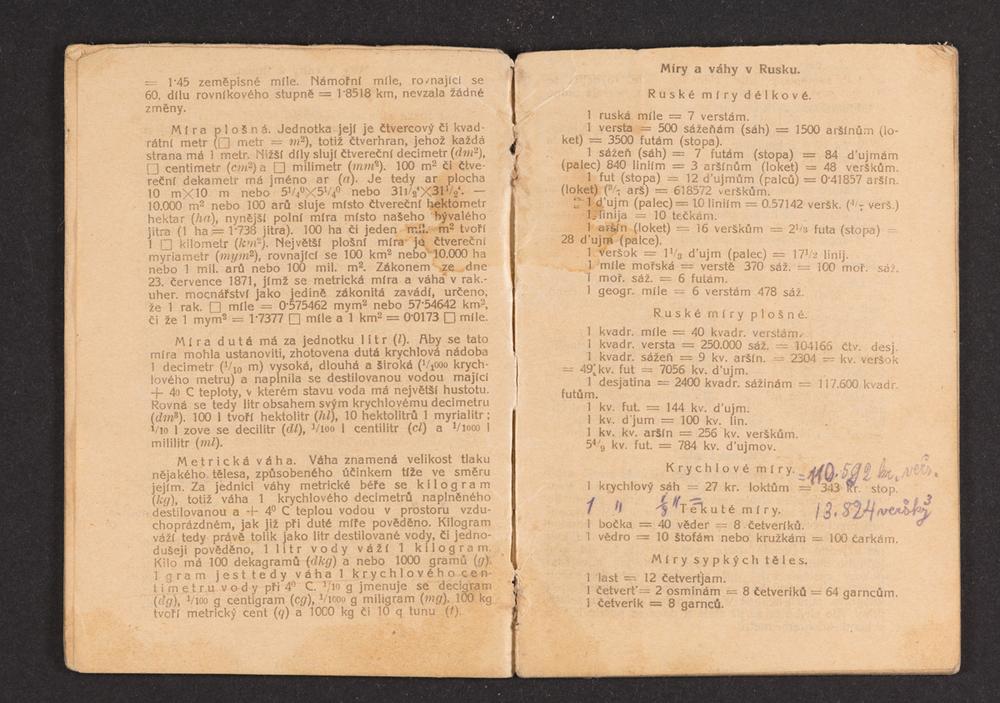 = 1·45 zeměpisné míle. Námořní míle, rovnající se
60. dílu rovníkového stupně = 1·8518 km, nevzala žádné
změny.
Míra plošná. Jednotka její je čtvercový či kvad-
rátní metr (□ metr = m²), totiž čtverhran, jehož každá
strana má 1 metr. Nižší díly slují čtvereční decimetr (dm²),
□ centimetr (cm²) a □ milimetr (mm²). 100 m² či čtve-
reční dekametr má jméno ar (a). Je tedy ar plocha
10 m×10 m nebo 5¼⁰×5¼⁰ nebo
10.000 m² nebo 100 arů sluje místo čtvereční hektometr
hektar (ha), nynější polní míra místo našeho bývalého
jitra (1 ha = 1·738 jitra). 100 ha či jeden mil. m² tvoří
1 □ kilometr (km²). Největší plošní míra je čtvereční
myriametr (mym²), rovnající se 100 km² nebo 10.000 ha
nebo 1 mil. arů nebo 100 mil. m². Zákonem ze dne
23. července 1871, jímž se metrická míra a váha v rak.-
uher. mocnářství jako jedině zákonitá zavádí, určeno,
že 1 rak. □ míle = 0·575462 mym² nebo 57·54642 km²,
či že 1 mym² = 1·7377 □ míle a 1 km² = 0·0173 □ míle.
Míra dutá má za jednotku litr (l). Aby se tato
míra mohla ustanoviti, zhotovena dutá krychlová nádoba
1 decimetr (1/10 m) vysoká, dlouhá a široká (1/1000 krych-
lového metru) a naplnila se destilovanou vodou mající
+ 4⁰ C teploty, v kterém stavu voda má největší hustotu.
Rovná se tedy litr obsahem svým krychlovému decimetru
(dm³). 100 l tvoří hektolitr (hl), 10 hektolitrů 1 myrialitr;
1/10 l zove se decilitr (dl), 1/100 l centilitr (cl) a 1/1000 l
mililitr (ml).
Metrická váha. Váha znamená velikost tlaku
nějakého tělesa, způsobeného účinkem tíže ve směru
jejím. Za jednici váhy metrické béře se kilogram
(kg), totiž váha 1 krychlového decimetrů naplněného
destilovanou a + 4⁰ C teplou vodou v prostoru vzdu-
choprázdném, jak již při duté míře pověděno. Kilogram
váží tedy právě tolik jako litr destilované vody, či jedno-
dušeji pověděno, 1 litr vody váží 1 kilogram.
Kilo má 100 dekagramů (dkg) a nebo 1000 gramů (g).
1 gram jest tedy váha 1 krychlového cen-
timetru vody při 4⁰ C. 1/10 g jmenuje se decigram
(dg), 1/100 g centigram (cg), 1/1000 g miligram (mg). 100 kg
tvoří metrický cent (q) a 1000 kg či 10 q tunu (t).
Míry a váhy v Rusku.
Ruské míry délkové.
1 ruská míle = 7 verstám.
1 versta = 500 sážeňám (sáh) = 1500 aršínům (lo-
ket) = 3500 futám (stopa).
1 sážeň (sáh) = 7 futám (stopa) = 84 d'ujmám
(palec) 840 liniím = 3 aršínům (loket) = 48 verškům.
1 fut (stopa) = 12 d'ujmům (palců) = 0·41857 aršín.
(loket) (³/₇ arš) = 618572 verškům.
1 d'ujm (palec) = 10 liniím = 0.57142 veršk. (⁴/₇ verš.)
1 linija = 10 tečkám.
1 aršín (loket) = 16 verškům = 2⅓ futa (stopa) =
28 d'ujm (palce).
1 veršok = 1⅓ d'ujm (palec) = 17½ linij.
1 míle mořská = verstě 370 sáž. = 100 moř. sáž.
1 moř. sáž. = 6 futám.
1 geogr. míle = 6 verstám 478 sáž.
Ruské míry plošné.
1 kvadr. míle = 40 kvadr. verstám.
1 kvadr. versta = 250.000 sáž. = 104166 čtv. desj.
1 kvadr. sážeň = 9 kv. aršín. = 2304 = kv. veršok
= 49 kv. fut = 7056 kv. d'ujm.
1 desjatina = 2400 kvadr. sážinám = 117.600 kvadr.
futům.
1 kv. fut. = 144 kv. d'ujm.
1 kv. d'jum = 100 kv. lin.
1 kv. kv. aršín = 256 kv. verškům.
5⁴/₉ kv. fut. = 784 kv. d'ujmov.
Krychlové míry. = 110.592 kr. verš.
1 krychlový sáh = 27 kr. loktům = 343 kr. stop.
1 " ⅓ " = 13.824 veršky³
Tekuté míry.
1 bočka = 40 věder = 8 četveríků.
1 vědro = 10 štofám nebo kružkám = 100 čarkám.
Míry sypkých těles.
1 last = 12 četvertjam.
1 četvert' = 2 osminám = 8 četveriků = 64 garncům.
1 četverik = 8 garnců.